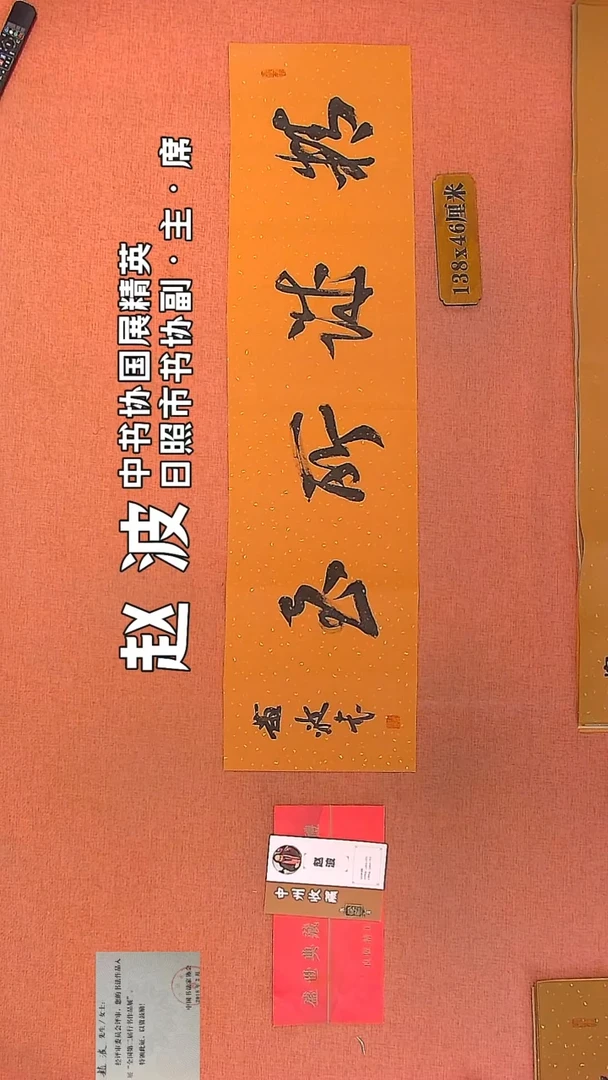 赵波
中书协国展精英
日照市书协副·主·席
精诚所至
赵波书
138x46厘米
赵波
中州收藏
盛世典藏
赵波 先生/女士:
经评审委员会评审,您的书法作品入
展“全国第二届行书作品展”,
特颁此证,以资鼓励!
中国书法家协会